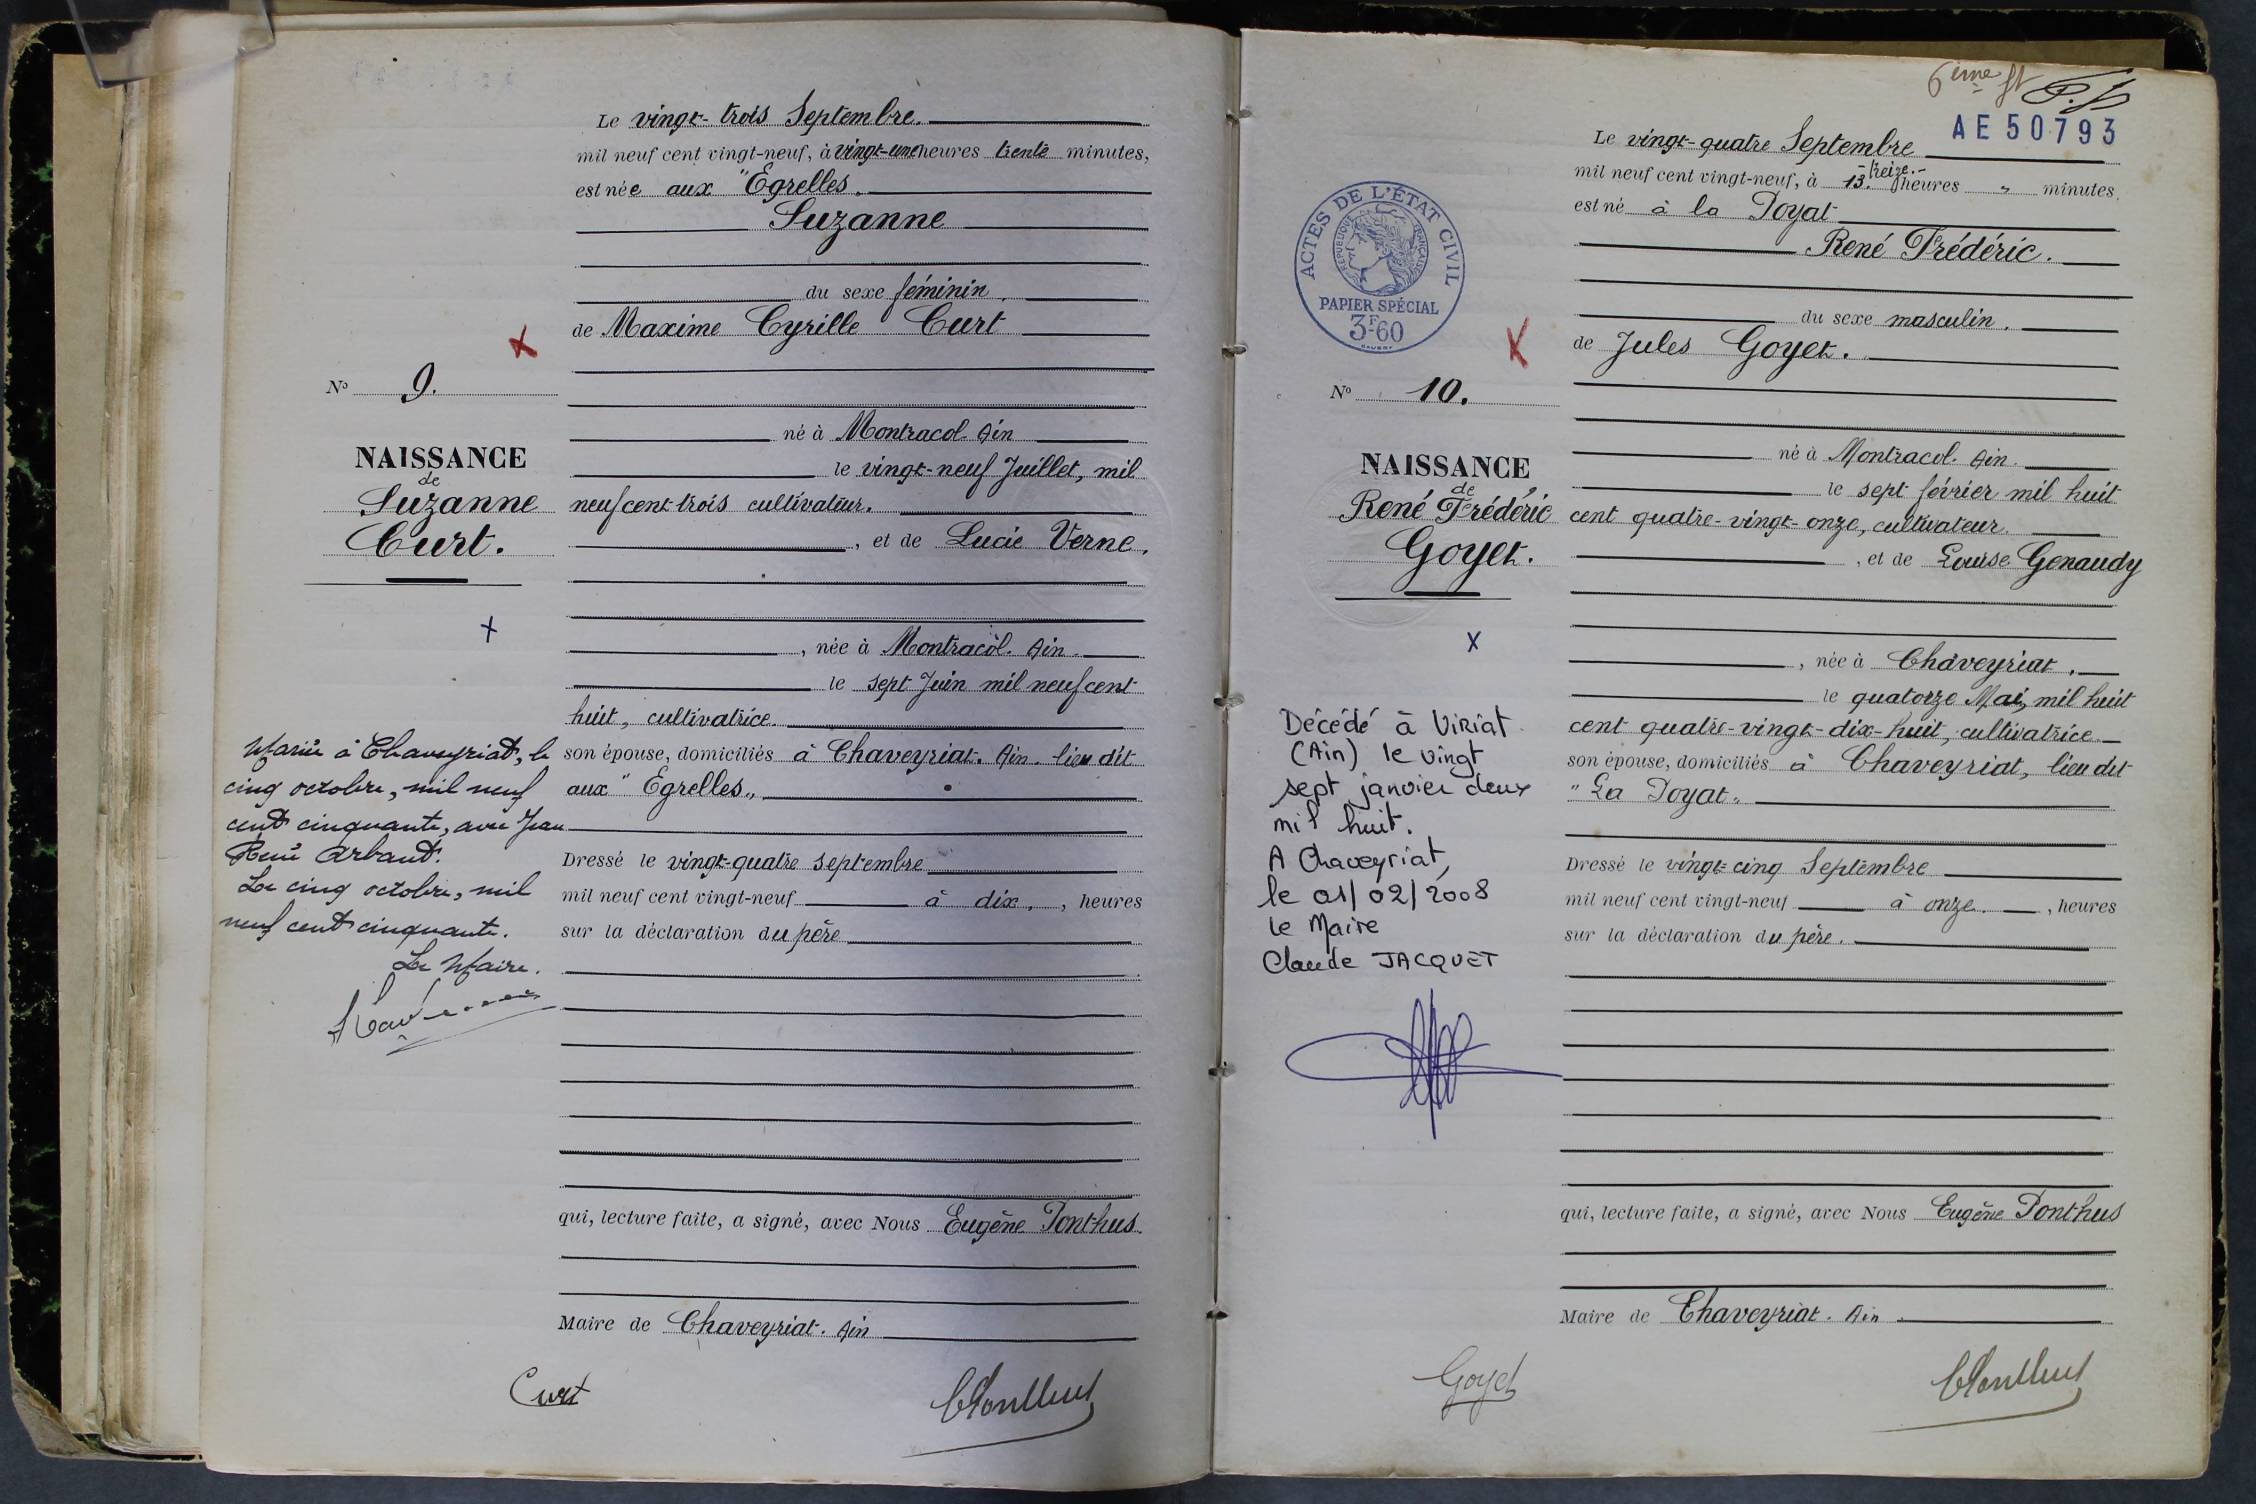 Le vingt-trois Septembre.
mil neuf cent vingt-neuf, à vingt-une heures trente minutes,
est née aux "Egrelles.
Suzanne
du sexe féminin.
de Maxime Cyrille Curt
né à Montracol. Ain
le vingt-neuf Juillet, mil
neuf cent trois cultivateur.
, et de Lucie Verne.
, née à Montracol. Ain.
le sept Juin mil neuf cent
huit, cultivatrice.
son épouse, domiciliés à Chaveyriat. Ain. lieu dit
aux "Egrelles"
Dressé le vingt-quatre septembre
mil neuf cent vingt-neuf à dix, , heures
sur la déclaration du père
qui, lecture faite, a signé, avec Nous Eugène Ponthus.
Maire de Chaveyriat. Ain
Curt
No 9.
NAISSANCE
de
Suzanne
Curt.
Mariée à Chaveyriat, le
cinq octobre, mil neuf
cent cinquante, avec Jean
René Arbant.
Le cinq octobre, mil
neuf cent cinquante.
Le Maire.
6ème ft
AE50793
Le vingt-quatre Septembre
mil neuf cent vingt-neuf, à 13. -treize.- heures " minutes.
est né à la Poyat
René Frédéric.
du sexe masculin.
de Jules Goyet.
né à Montracol. Ain.
le sept février mil huit
cent quatre-vingt-onze, cultivateur.
, et de Louise Genaudy
, née à Chaveyriat.
le quatorze Mai, mil huit
cent quatre-vingt-dix-huit, cultivatrice
son épouse, domiciliés à Chaveyriat, lieu dit
"La Poyat"
Dressé le vingt-cinq Septembre
mil neuf cent vingt-neuf à onze. , heures
sur la déclaration du père.
qui, lecture faite, a signé, avec Nous Eugène Ponthus
Maire de Chaveyriat. Ain
Goyet
ACTES DE L'ÉTAT CIVIL
RÉPUBLIQUE FRANÇAISE
PAPIER SPÉCIAL
3F60
No 10.
NAISSANCE
de
René Frédéric
Goyet.
Décédé à Viriat
(Ain) le vingt
sept janvier deux
mil huit.
A Chaveyriat,
le 01/02/2008
le Maire
Claude JACQUET